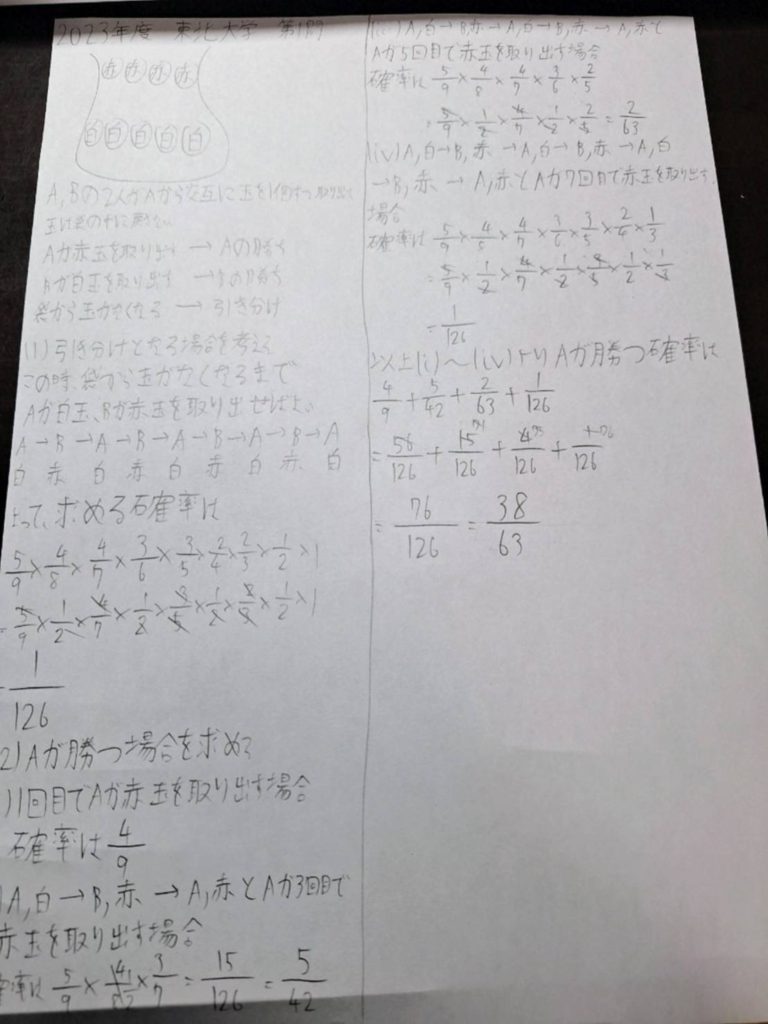 2023年度 東北大学 第1問
赤 赤 赤 赤
白 白 白 白 白
A, Bの2人がAから交互に玉を1個ずつ取り出す
玉は袋の中に戻さない
Aが赤玉を取り出す → Aの勝ち
Bが白玉を取り出す → Bの勝ち
袋から玉がなくなる → 引き分け
(1) 引き分けとなる場合を考える
この時、袋から玉がなくなるまで
Aが白玉、Bが赤玉を取り出せばよい
A → B → A → B → A → B → A → B → A
白 赤 白 赤 白 赤 白 赤 白
よって、求める確率は
5/9 × 4/8 × 4/7 × 3/6 × 3/5 × 2/4 × 2/3 × 1/2 × 1
= 5/9 × 1/2 × 4/7 × 1/2 × 3/5 × 1/2 × 2/3 × 1/2 × 1
1/126
2) Aが勝つ場合を求める
) 1回目でAが赤玉を取り出す場合
確率は 4/9
) A, 白 → B, 赤 → A, 赤とAが3回目で
赤玉を取り出す場合
確率は 5/9 × 4/8 × 3/7 = 15/126 = 5/42
(iii) A, 白 → B, 赤 → A, 白 → B, 赤 → A, 赤と
Aが5回目で赤玉を取り出す場合
確率は 5/9 × 4/8 × 4/7 × 3/6 × 2/5
= 5/9 × 1/2 × 4/7 × 1/2 × 2/5 = 2/63
(iv) A, 白 → B, 赤 → A, 白 → B, 赤 → A, 白
→ B, 赤 → A, 赤とAが7回目で赤玉を取り出す
場合
確率は 5/9 × 4/8 × 4/7 × 3/6 × 3/5 × 2/4 × 1/3
= 5/9 × 1/2 × 4/7 × 1/2 × 3/5 × 1/2 × 1/3
= 1/126
以上(i)〜(iv)よりAが勝つ確率は
4/9 + 5/42 + 2/63 + 1/126
= 56/126 + 15/126 + 4/126 + 1/126
= 76/126 = 38/63